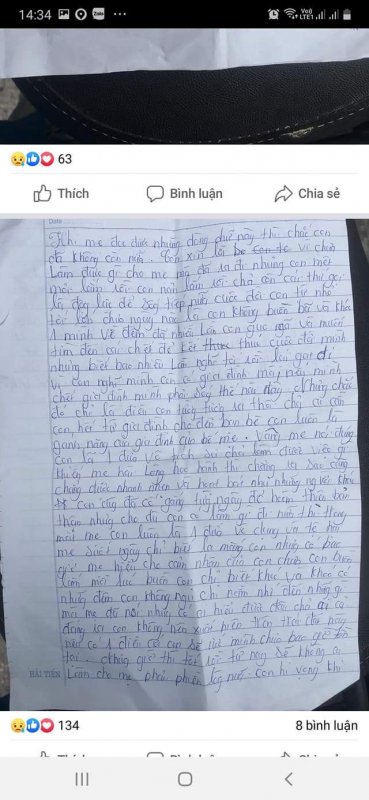 14:34
Zalo
Vo)) LTE1
63
Thích
Bình luận
Chia sẻ
Date
Khi mẹ đọc được những dòng chữ này thì chắc con
đã không còn nữa. Con xin lỗi vì chưa
làm được gì cho mẹ mà đã ra đi nhưng con mệt
mỏi lắm rồi con nản lắm rồi chả còn cái thứ gọi
là động lực để sống tiếp nữa cuộc đời con từ nhỏ
tới lớn chưa ngày nào là con không buồn bã và khóc
1 mình về đêm đã nhiều lần con gục ngã và muốn
tìm đến cái chết để kết thúc cuộc đời mình
nhưng biết bao nhiêu lần nghĩ tới rồi lại gạt đi
vì con nghĩ mình còn có gia đình mà, nếu mình
chết gia đình mình phải sống thế nào đây. Nhưng chắc
đó chỉ là điều con tưởng tượng ra thôi chứ ai cần
con, hết từ gia đình cho đến bạn bè con luôn là
gánh nặng của gia đình của bố mẹ. Vâng mẹ nói đúng
con là 1 đứa vô tích sự chả làm được việc gì
khiến mẹ hài lòng học hành thì chẳng ra sao cũng
chẳng được nhanh nhẹn và hoạt bát như những người khác
con cũng đã cố gắng từng ngày để hoàn thiện bản
thân nhưng cho dù con có làm gì đi nữa thì trong
mắt mẹ con luôn là 1 đứa vô dụng
mẹ suốt ngày chỉ biết là mắng con nhưng có bao
giờ mẹ hiểu cho cảm nhận của con chưa con buồn
lắm mỗi lúc buồn con chỉ biết khóc và khóc có
nhiều đêm con không ngủ chỉ nằm nhớ đến những gì
mà mẹ đã nói nhưng có ai hiểu được đâu chứ
đúng ra con không nên xuất hiện trên trái đất này
nếu có 1 điều ước con sẽ ước mình chưa bao giờ tồn
tại. từ nay sẽ không ai
HẢI TIẾN
làm cho mẹ phải phiền lòng nữa. Con hi vọng khi
134
8 bình luận
Thích
Bình luận
Chia sẻ